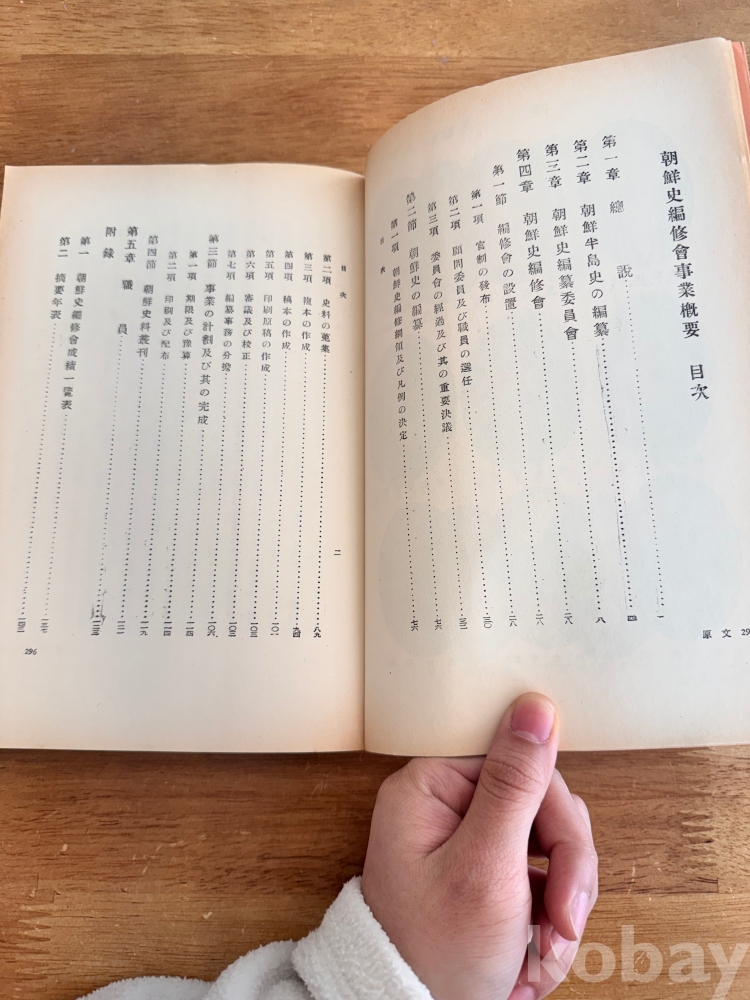 朝鮮史編修會事業概要 目次
第一章 總說……一
第二章 朝鮮半島史の編纂……四
第三章 朝鮮史編纂委員會……八
第四章 朝鮮史編修會……二八
第一節 編修會の設置……二八
第一項 官制の發布……二八
第二項 顧問委員及び職員の選任……三〇
第三項 委員會の經過及び其の重要決議……三二
第二節 朝鮮史の編纂……七六
第一項 朝鮮史編修綱領及び凡例の決定……七六
目次
原文 29
目次
二
第二項 史料の蒐集……八九
第三項 複本の作成……九四
第四項 稿本の作成
第五項 印刷原稿の作成……一〇三
第六項 審議及び校正……一〇三
第七項 編纂事務の分擔……一〇六
第三節 事業の計劃及び其の完成……一一四
第一項 期限及び豫算……一一四
第二項 印刷及び配布……一一九
第四節 朝鮮史料叢刊……一二一
第五章 職員
附錄
第一 朝鮮史編修會成績一覽表……一三七
第二 摘要年表
296
kobay